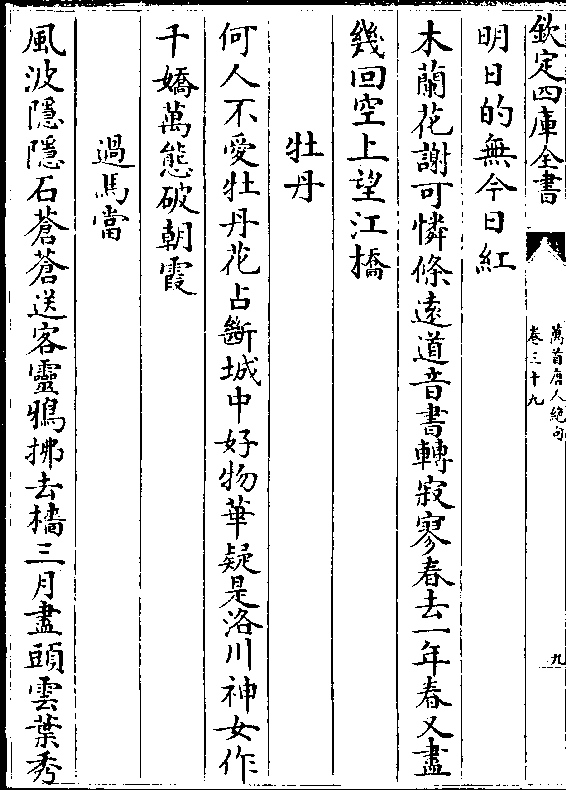 欽定四庫全書
萬首唐人絶句
卷三十九
九
明日的無今日紅
木蘭花謝可憐條遠道音書轉寂寥春去一年春又盡
幾回空上望江橋
牡丹
何人不愛牡丹花占斷城中好物華疑是洛川神女作
千嬌萬態破朝霞
過馬當
風波隱隱石蒼蒼送客靈鴉拂去檣三月盡頭雲葉秀